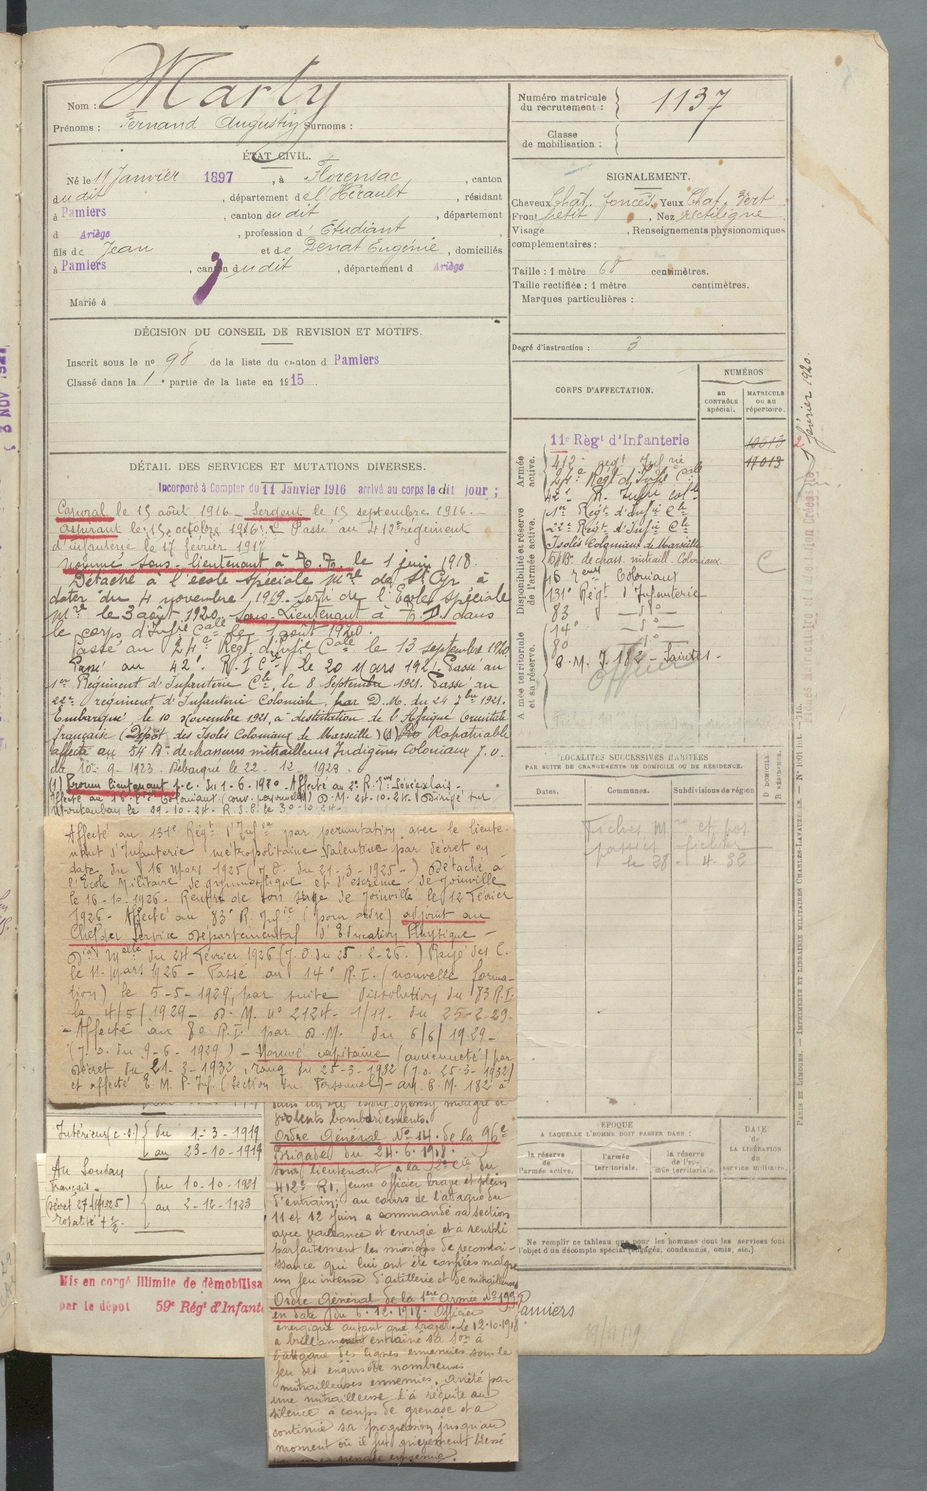 Nom : Marty
Prénoms : Fernand Augustin Surnoms :
ÉTAT CIVIL.
Né le 11 Janvier 1897, à Florensac, canton
dudit, département de l'Hérault, résidant
à Pamiers, canton dudit, département
d Ariège, profession d'Étudiant
fils de Jean et de Denat Eugénie, domiciliés
à Pamiers, canton dudit, département d Ariège
Marié à
DÉCISION DU CONSEIL DE REVISION ET MOTIFS.
Inscrit sous le n° 98 de la liste du canton d Pamiers
Classé dans la 1e partie de la liste en 1915
DÉTAIL DES SERVICES ET MUTATIONS DIVERSES.
Incorporé à Compter du 11 Janvier 1916 arrivé au corps le dit jour ;
Caporal le 15 août 1916 _ Sergent le 15 septembre 1916. _
Aspirant le 15 octobre 1916. Passé au 412e régiment
d'infanterie le 17 février 1917
Nommé sous-lieutenant à T. T. le 1 juin 1918.
Détaché à l'école spéciale Mre de St Cyr à
dater du 4 novembre 1919. Sorti de l'École Spéciale
Mre le 3 août 1920, Sous-Lieutenant à T.D. dans
le corps d'Infie Cale le 1 août 1920.
Passé au 24e Régt d'Infie Cale le 13 septembre 1920
Passé au 42e R.I.C. le 20 Mars 1921 Passé au
1er Régiment d'Infanterie Cle, le 8 Septembre 1921. Passé au
22e régiment d'Infanterie Coloniale, par D.M. du 24 7bre 1921.
Embarqué, le 10 Novembre 1921, à destination de l'Afrique Occidtale
française (Dépôt des Isolés Coloniaux de Marseille) (1) Rapatriable
affecté au 54 Bn de chasseurs mitrailleurs Indigènes Coloniaux J.O.
du 10-9-1923. Débarqué le 22-12-1923.
(1) Promu lieutenant p.c. du 1-8-1920. Affecté au 2e R. Tirs Sénégalais.
Affecté au 16e Coloniaux D.M. 24-10-24. Dirigé sur
Montauban le 29-10-24. 30-10-24.
Affecté au 131e Régt d'Infie par permutation avec le lieute-
nant d'Infanterie métropolitaine Valentine par décret en
date du 16 Mars 1925 (J.O. du 21-3-1925-) Détaché à
l'École Militaire de gymnastique et d'escrime de Joinville
le 16-10-1926. Rentré de son stage de Joinville le 12 février
1926 - Affecté au 83e R. Infie (pour ordre) adjoint au
Chef du Service départemental d'Éducation Physique -
Don Melle du 24 février 1926 (J.O. du 25-2-26.) Rayé des C.
le 11 Mars 1926 - Passé au 14e R.I. (nouvelle forma-
tion) le 5-5-1929, par suite dissolution du 83 R.I.
le 4/5/1929 - D.M. n° 2124. 1/11. du 25-2-29.
- Affecté au 80 R.I. par D.M. du 6/6/1929 -
(J.O. du 9-6-1929) - Nommé capitaine (ancienneté) par
Décret du 21-3-1932, rang du 25-3-1932 (J.O. 25-3-1932)
et affecté E.M.P. Inf. (Section du Personnel) - aff. C.M. 182 à
Intérieur (c.s.) du 1-3-1919
au 23-10-1919
Au Soudan
français du 10-10-1921
au 2-12-1923
violents bombardements.
Ordre Général N° 14. de la 96e
Brigade du 24.6.1918.
Sous lieutenant à la 2e Cie du
412e RI, Jeune officier brave et plein
d'entrain; au cours de l'attaque du
11 et 12 Juin a commandé sa section
avec vaillance et energie et a rempli
parfaitement les missions de reconnai-
ssance qui lui ont été confiées malgré
un feu intense d'artillerie et de mitrailleuses
Ordre Général de la 1ère Armée N° 199
en date du 6.12.1918. Officier
énergique autant que brave. Le 12.10.1918
a brillamment entraîné sa son à
l'attaque des lignes ennemies sous le
feu des engins de nombreuses
mitrailleuses ennemies. Arrêté par
une mitrailleuse l'a réduite au
silence à coups de grenade et a
continué sa progression jusqu'au
moment où il fut grièvement blessé
Mis en congé illimité de démobilisa
par le dépôt 59e Régt d'Infante
Pamiers
19/11/19
Numéro matricule
du recrutement : 1137
Classe
de mobilisation :
SIGNALEMENT.
Cheveux Chât. foncés. Yeux Chat. Vert
Front petit, Nez rectiligne
Visage, Renseignements physionomiques
complémentaires :
Taille : 1 mètre 68 centimètres.
Taille rectifiée : 1 mètre centimètres.
Marques particulières :
Degré d'instruction : 3
CORPS D'AFFECTATION.
NUMÉROS
AU CONTRÔLE spécial.
MATRICULE ou au répertoire.
Armée active.
Disponibilité et réserve de l'armée active.
Armée territoriale et sa réserve.
11e Régt d'Infanterie 10616
412e régt Infrie 11013
24e Régt d'Infie Cale
42e R. Infie cole
1er Régt d'Infie Cle
22e Régt d'Infie Cle
Isolés Coloniaux de Marseille
54 Bn de chass. mitraill. Coloniaux.
16 Coloniaux
131e Régt d'Infanterie
83 _ do _
14e _ do _
80 _ do _
C.M. 182 - Saintes -
officier
C
LOCALITÉS SUCCESSIVES HABITÉES
PAR SUITE DE CHANGEMENTS DE DOMICILE OU DE RÉSIDENCE.
Dates.
Communes.
Subdivisions de région
D. DOMICILE
R. RÉSIDENCE.
ÉPOQUE
A LAQUELLE L'HOMME DOIT PASSER DANS :
la réserve de l'armée active.
l'armée territoriale.
la réserve de l'armée territoriale.
DATE DE LA LIBÉRATION du service militaire.
Ne remplir ce tableau que pour les hommes dont les services font
l'objet d'un décompte spécial (engagés, condamnés, omis, etc.).
février 1920.
PARIS ET LIMOGES. — IMPRIMERIE ET LIBRAIRIE MILITAIRES CHARLES-LAVAUZELLE.